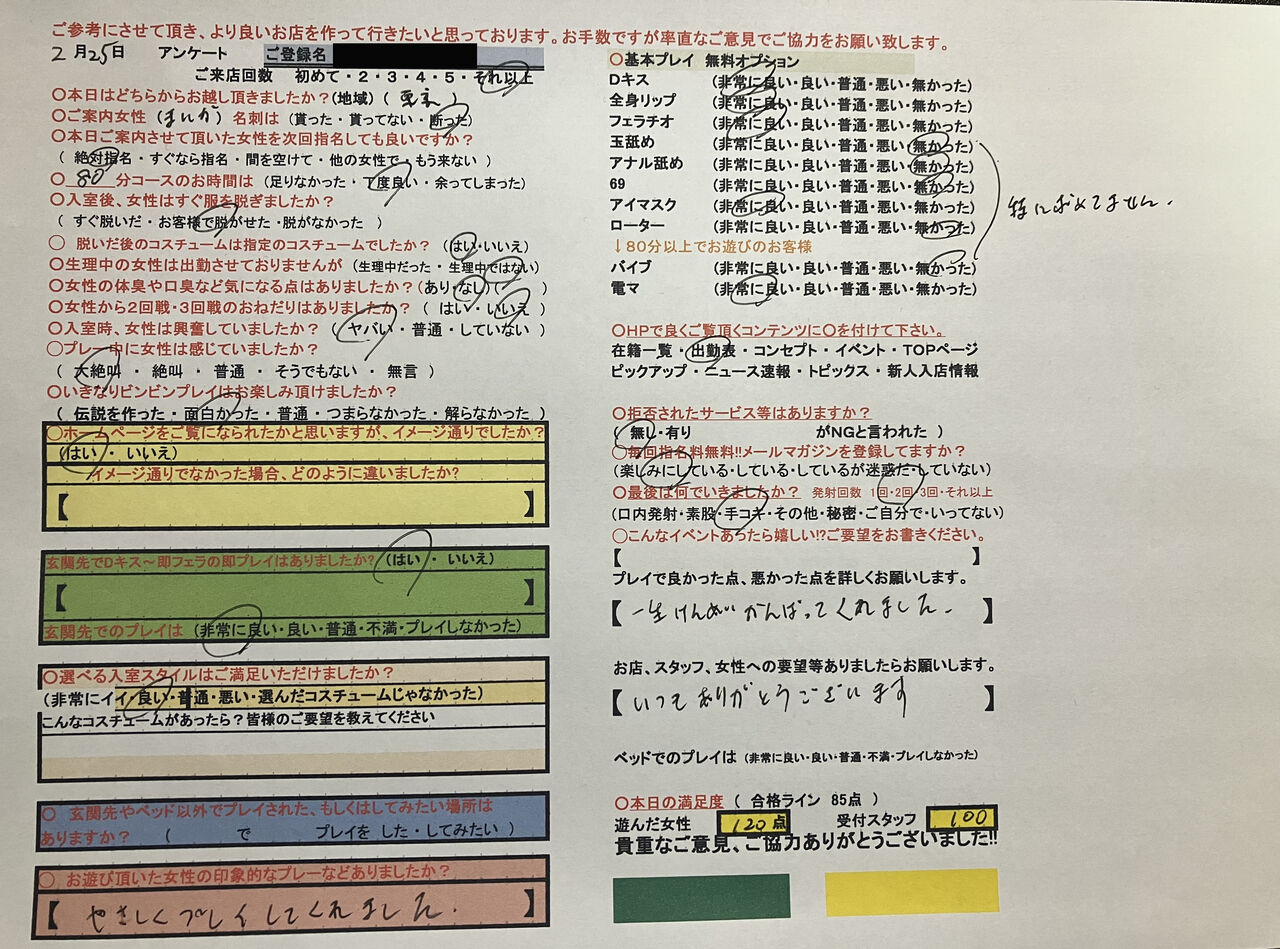 ご参考にさせて頂き、より良いお店を作って行きたいと思っております。お手数ですが率直なご意見でご協力をお願い致します。
2月25日 アンケート ご登録名
ご来店回数 初めて・2・3・4・5・それ以上
〇本日はどちらからお越し頂きましたか?(地域) ( 東京 )
〇ご案内女性 (まいか) 名刺は (貰った・貰ってない・断った)
〇本日ご案内させて頂いた女性を次回指名しても良いですか?
( 絶対指名・すぐなら指名・間を空けて・他の女性で・もう来ない )
〇 80 分コースのお時間は (足りなかった・丁度良い・余ってしまった)
〇入室後、女性はすぐ服を脱ぎましたか?
( すぐ脱いだ・お客様で脱がせた・脱がなかった )
〇 脱いだ後のコスチュームは指定のコスチュームでしたか? (はい・いいえ)
〇生理中の女性は出勤させておりませんが (生理中だった・生理中ではない)
〇女性の体臭や口臭など気になる点はありましたか?(あり・なし)( )
〇女性から2回戦・3回戦のおねだりはありましたか? ( はい・いいえ )
〇入室時、女性は興奮していましたか? ( ヤバい・普通・していない )
〇プレー中に女性は感じていましたか?
( 大絶叫・絶叫・普通・そうでもない・無言 )
〇いきなりビンビンプレイはお楽しみ頂けましたか?
( 伝説を作った・面白かった・普通・つまらなかった・解らなかった )
〇ホームページをご覧になられたかと思いますが、イメージ通りでしたか?
(はい・いいえ)
イメージ通りでなかった場合、どのように違いましたか?
【 】
玄関先でDキス～即フェラの即プレイはありましたか? (はい・いいえ)
【 】
玄関先でのプレイは (非常に良い・良い・普通・不満・プレイしなかった)
〇選べる入室スタイルはご満足いただけましたか?
(非常にイイ・良い・普通・悪い・選んだコスチュームじゃなかった)
こんなコスチュームがあったら?皆様のご要望を教えてください
〇 玄関先やベッド以外でプレイされた、もしくはしてみたい場所は
ありますか? ( で プレイを した・してみたい )
〇 お遊び頂いた女性の印象的なプレーなどありましたか?
【 やさしくプレイしてくれました. 】
〇基本プレイ 無料オプション
Dキス (非常に良い・良い・普通・悪い・無かった)
全身リップ (非常に良い・良い・普通・悪い・無かった)
フェラチオ (非常に良い・良い・普通・悪い・無かった)
玉舐め (非常に良い・良い・普通・悪い・無かった)
アナル舐め (非常に良い・良い・普通・悪い・無かった)
69 (非常に良い・良い・普通・悪い・無かった)
アイマスク (非常に良い・良い・普通・悪い・無かった)
ローター (非常に良い・良い・普通・悪い・無かった)
特に求めてません.
↓80分以上でお遊びのお客様
バイブ (非常に良い・良い・普通・悪い・無かった)
電マ (非常に良い・良い・普通・悪い・無かった)
〇HPで良くご覧頂くコンテンツに〇を付けて下さい。
在籍一覧・出勤表・コンセプト・イベント・TOPページ
ピックアップ・ニュース速報・トピックス・新人入店情報
〇拒否されたサービス等はありますか?
( 無し・有り がNGと言われた )
〇毎回指名料無料!!メールマガジンを登録してますか?
(楽しみにしている・している・しているが迷惑だ・していない)
〇最後は何でいきましたか? 発射回数 1回・2回・3回・それ以上
(口内発射・素股・手コキ・その他・秘密・ご自分で・いってない)
〇こんなイベントあったら嬉しい!?ご要望をお書きください。
【 】
プレイで良かった点、悪かった点を詳しくお願いします。
【 一生けんめいがんばってくれました. 】
お店、スタッフ、女性への要望等ありましたらお願いします。
【 いつもありがとうございます 】
ベッドでのプレイは (非常に良い・良い・普通・不満・プレイしなかった)
〇本日の満足度 ( 合格ライン 85点 )
遊んだ女性 120点 受付スタッフ 100
貴重なご意見、ご協力ありがとうございました!!